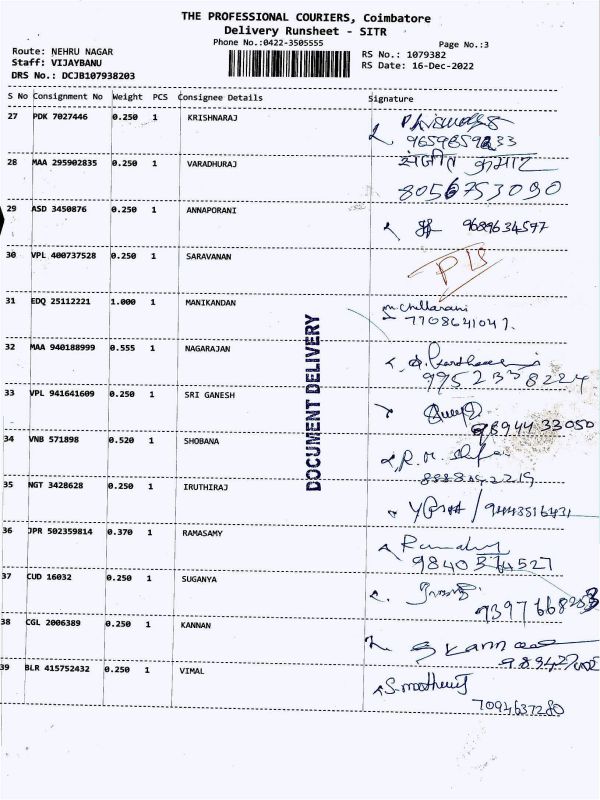 THE PROFESSIONAL COURIERS, Coimbatore
Delivery Runsheet - SITR
Phone No.:0422-3505555
Page No.:3
Route: NEHRU NAGAR
RS No.: 1079382
Staff: VIJAYBANU
RS Date: 16-Dec-2022
DRS No.: DCJB107938203
S No Consignment No Weight PCS Consignee Details Signature
27 PDK 7027446 0.250 1 KRISHNARAJ
28 MAA 295902835 0.250 1 VARADHURAJ
संजीत कुमार
8056753090
29 ASD 3450876 0.250 1 ANNAPORANI
9689634597
30 VPL 400737528 0.250 1 SARAVANAN
31 EDQ 25112221 1.000 1 MANIKANDAN
7708641047.
32 MAA 940188999 0.555 1 NAGARAJAN
33 VPL 941641609 0.250 1 SRI GANESH
9894433050
34 VNB 571898 0.520 1 SHOBANA
R. M.
35 NGT 3428628 0.250 1 IRUTHIRAJ
9443516431
36 JPR 502359814 0.370 1 RAMASAMY
37 CUD 16032 0.250 1 SUGANYA
38 CGL 2006389 0.250 1 KANNAN
39 BLR 415752432 0.250 1 VIMAL
7094637280
DOCUMENT DELIVERY